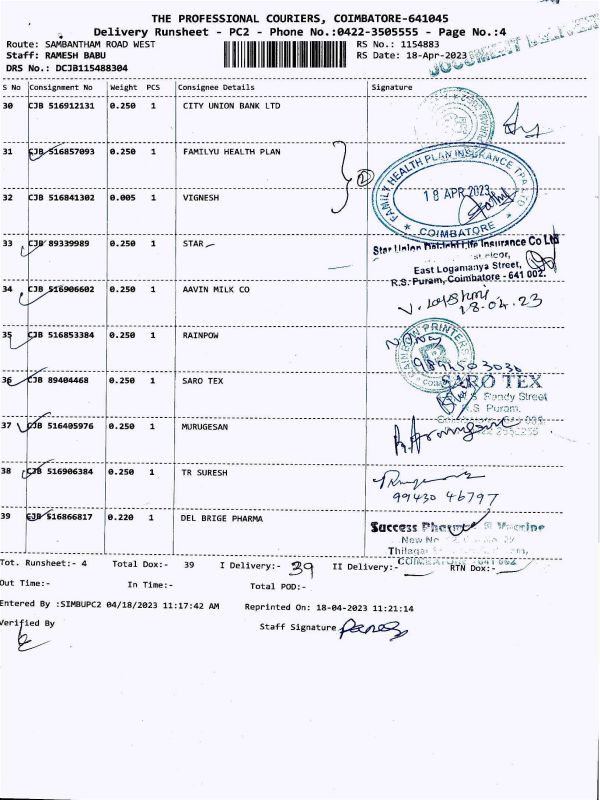 THE PROFESSIONAL COURIERS, COIMBATORE-641045
Delivery Runsheet - PC2 - Phone No.:0422-3505555 - Page No.:4
Route: SAMBANTHAM ROAD WEST RS No.: 1154883
Staff: RAMESH BABU RS Date: 18-Apr-2023
DRS No.: DCJB115488304
DOCUMENT DELIVERY
S No Consignment No Weight PCS Consignee Details Signature
30 CJB 516912131 0.250 1 CITY UNION BANK LTD
31 CJB 516857093 0.250 1 FAMILYU HEALTH PLAN
2
FAMILY HEALTH PLAN INSURANCE TPA LTD
18 APR 2023
★ COIMBATORE ★
32 CJB 516841302 0.005 1 VIGNESH
33 CJB 89339989 0.250 1 STAR
Star Union Dai-ichi Life Insurance Co Ltd
East Logamanya Street,
R.S. Puram, Coimbatore - 641 002.
34 CJB 516906602 0.250 1 AAVIN MILK CO
18.04.23
35 CJB 516853384 0.250 1 RAINPOW
RAINBOW PRINTERS
36 CJB 89404468 0.250 1 SARO TEX
SARO TEX
Street
R.S Puram,
37 CJB 516405976 0.250 1 MURUGESAN
38 CJB 516906384 0.250 1 TR SURESH
99430 46797
39 CJB 516866817 0.220 1 DEL BRIGE PHARMA
Success Pharma & Vaccine
New No
COIMBATORE - 641 002
Tot. Runsheet:- 4 Total Dox:- 39 I Delivery:- 39 II Delivery:- RTN Dox:-
Out Time:- In Time:- Total POD:-
Entered By :SIMBUPC2 04/18/2023 11:17:42 AM Reprinted On: 18-04-2023 11:21:14
Verified By Staff Signature